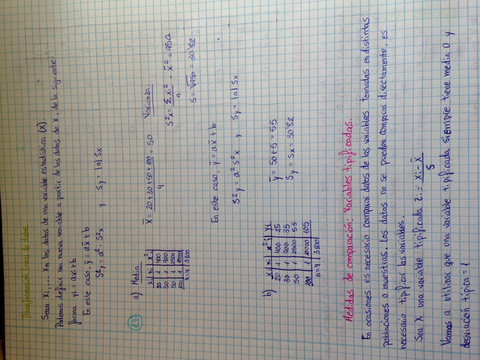 Transformaciones de datos.
Sean X1,... Xn los datos de una variable estadística (X)
Podemos definir una nueva variable a partir de los datos de X, de la siguiente
forma yi = axi + b
En este caso ȳ = ax̄ + b
S²y = a² S²x y Sy = |a| Sx
a) Media
x̄ = 20+30+50+100 / 4 = 50
Varianza
S²x = Σxi² / n - x̄² = 950
S = √950 = 30'82
En este caso, ȳ = ax̄ + b
S²y = a² S²x y Sy = |a| Sx
b)
ȳ = 50 + 5 = 55
Sy = Sx = 30'82
Medidas de comparación: Variables tipificadas.
En ocasiones es necesario comparar datos de las variables tomadas en distintas
poblaciones o muestras. Los datos no se pueden comparar directamente, es
necesario tipificar las variables.
Sea X una variable tipificada zi = xi - x̄ / S
Vamos a utilizar que una variable tipificada siempre tiene media 0 y
desviación típica = 1